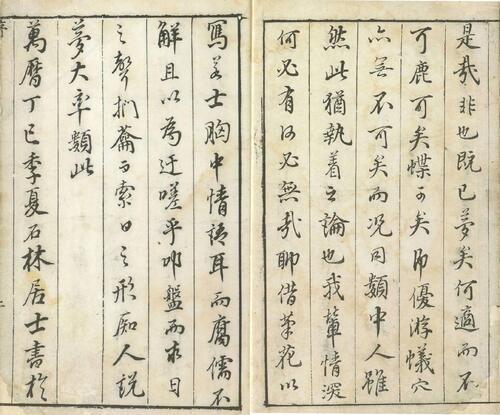 是哉非也既已夢矣何適而不
可鹿可矣蝶可矣即優游蟻穴
亦無不可矣而況同類中人雖
然此猶執着之論也我輩情深
何必有何必無哉聊借筆花以
寫若士胸中情語耳而腐儒不
解且以為迂嗟乎叩盤而求日
之聲捫籥而索日之形痴人說
夢大率類此
萬曆丁巳季夏石林居士書於